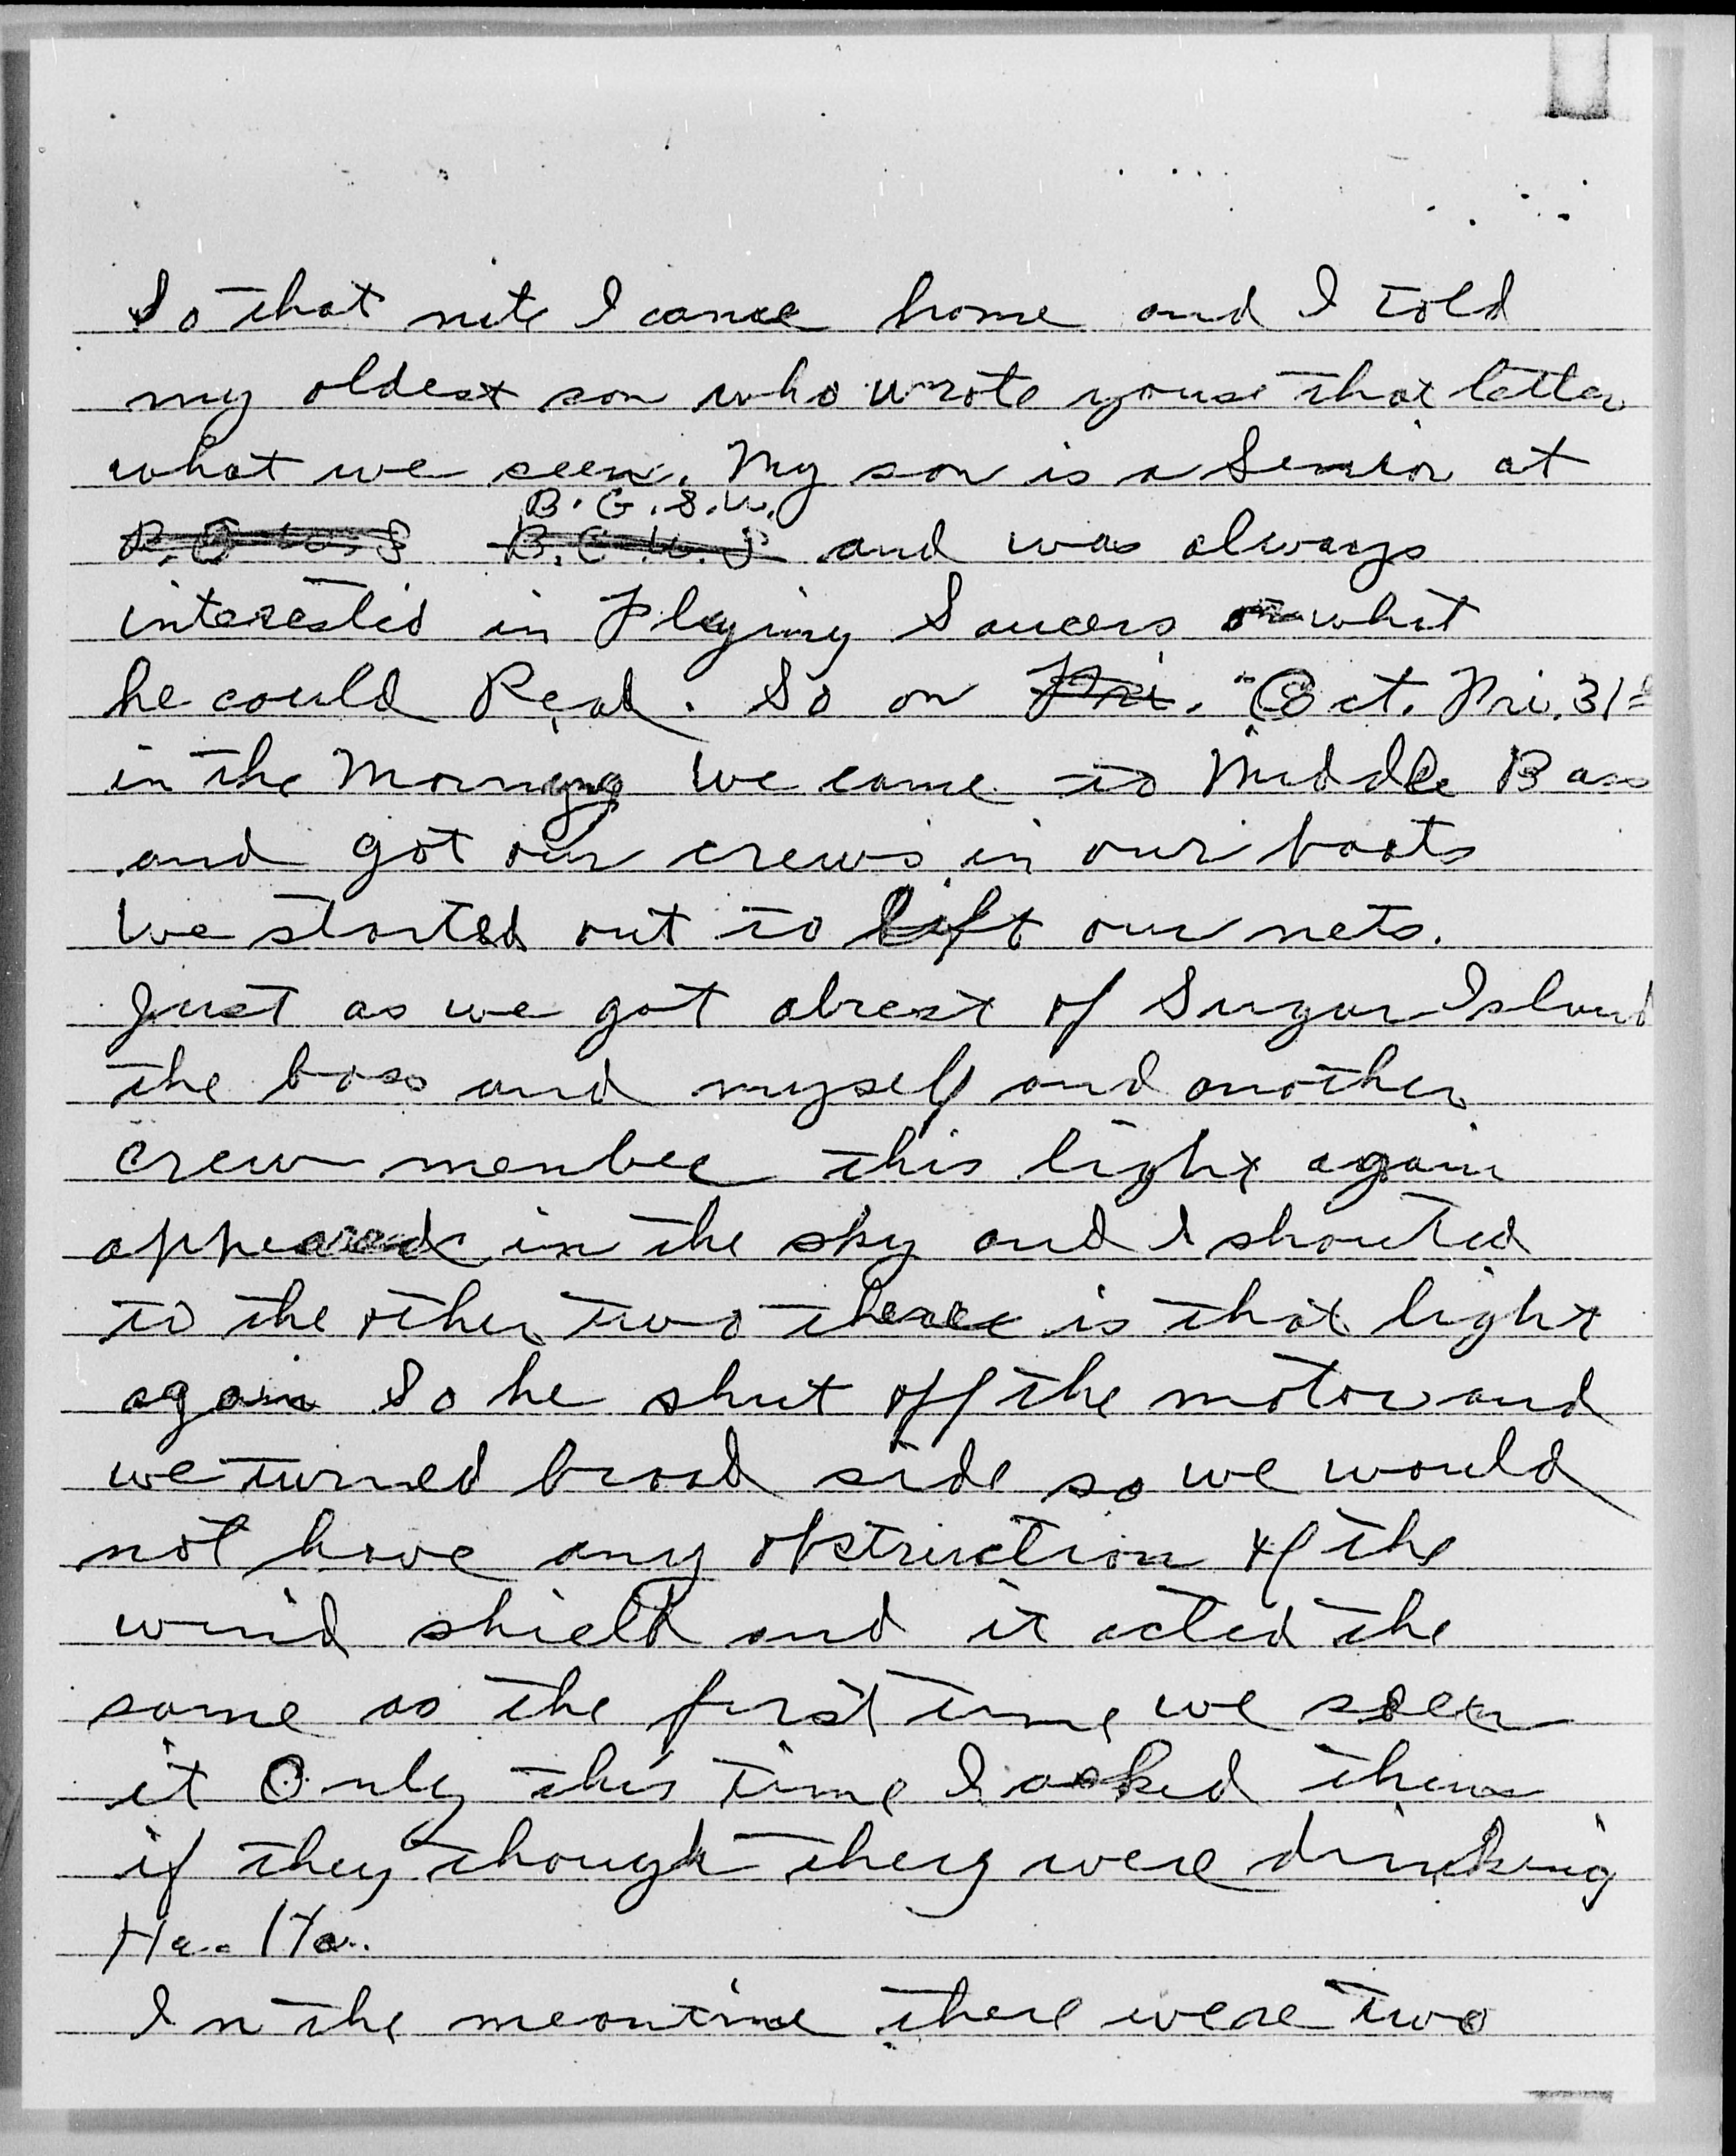 So that nite I came home and I told
my oldest son who wrote youse that letter
what we seen. My son is a Senior at
B. G. S. U.
B.G.U.S and was always
interested in Flying Saucers or what
he could Read. So on Fri. Oct. Fri. 31st
in the Morning We came to Middle Bass
and got our crews in our boats
We started out to lift our nets.
Just as we got abrest of Sugar Island
the boss and myself and another
crew member this light again
appeared in the sky and I shouted
to the other two there is that light
again So he shut off the motor and
we turned broad side so we would
not have any obstruction of the
wind shield and it acted the
same as the first time we seen
it Only this time I asked them
if they though they were drinking
Ha. Ha.
In the meantime there were two